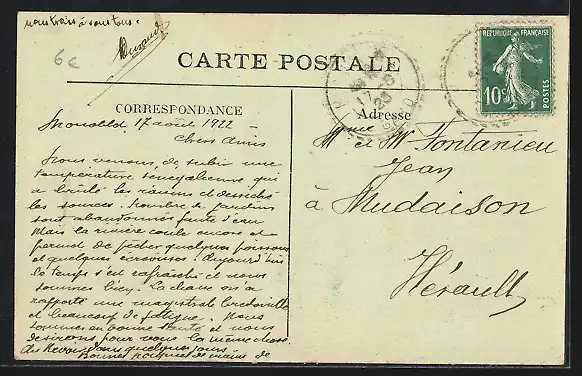 nous trois à vous tous.
Durand
6c
CARTE POSTALE
RÉPUBLIQUE FRANÇAISE
10c
POSTES
CORRESPONDANCE
Adresse
17 août 1922
Chers amis
Nous venons de subir une
température sénégalienne qui
a brûlé les raisins et desséché
les sources. Nombre de jardins
sont abandonnés faute d'eau
Mais la rivière coule encore et
permet de pêcher quelques poissons
et quelques écrevisses. Aujourd'hui
le temps s'est rafraîchi et nous
sommes bien. La chasse on a
rapporté une magistrale bredouille
et beaucoup de fatigue. Nous
sommes en bonne santé et nous
désirons pour vous la même chose.
Au Revoir dans quelques jours
Bonnes poignées de mains de
Mme et Mr Fontanieu
Jean
à Mudaison
Hérault